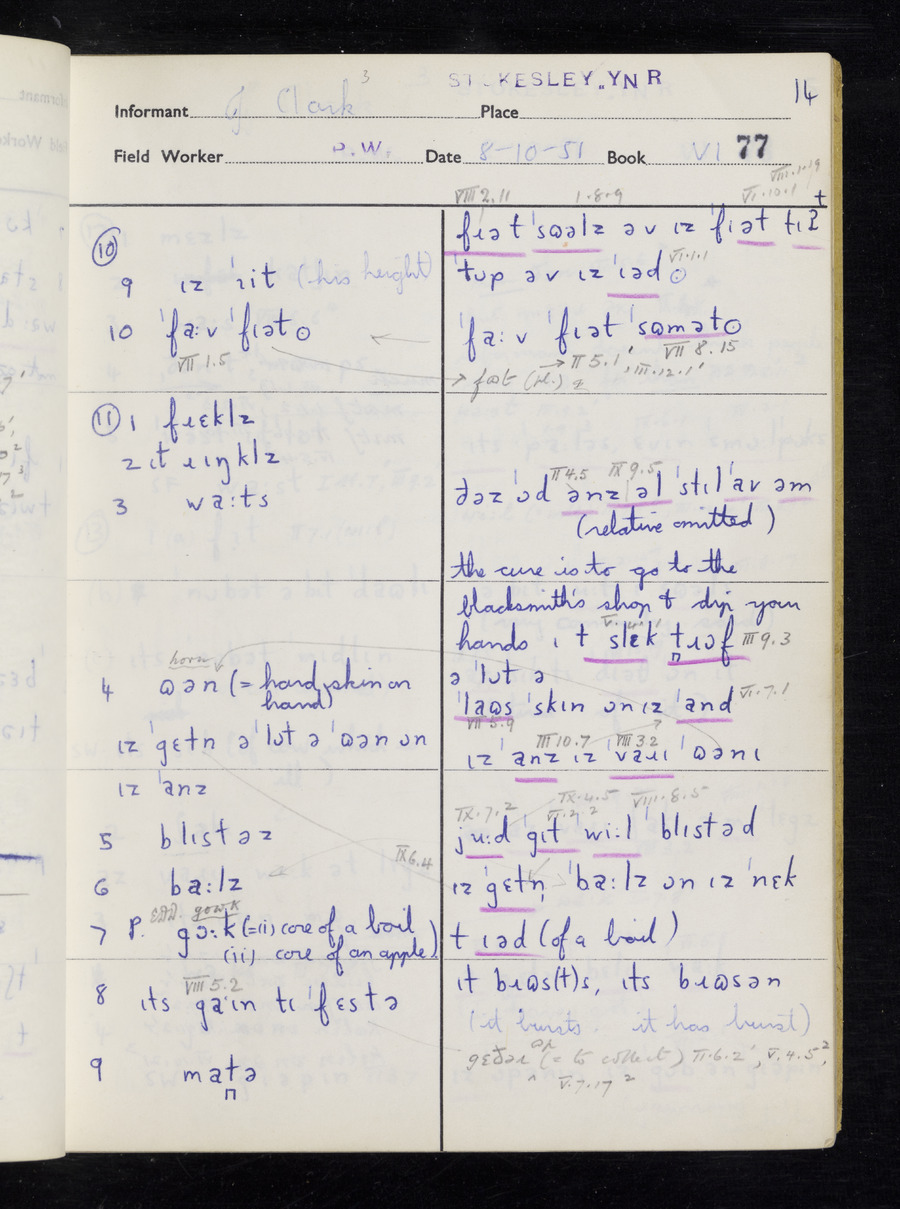 STOKESLEY. YN R
14
3
Informant J Clark Place
Field Worker D.W. Date 8-10-51 Book VI 77
VIII 2.11 1.8.9 VI.10.1 VIII.1.19
⑩
9 ɪz ˈɪit (his height)
10 ˈfaːv ˈfɪət ⊙
VII 1.5
⑪ 1 fɹɛklz
2 ɪt ɹɪŋklz
3 waːts
horn
4 ɷən (= hard skin on
hand)
ɪz ˈgɛtn ə ˈlʊt ə ˈɷən ʊn
ɪz ˈanz
5 blɪstəz
IX 6.4
6 baːlz
EDD. gowk
7 P. gɔːk (=(i) core of a boil
(ii) core of an apple)
VIII 5.2
8 ɪts gaˑɪn tɪ ˈfɛstə
9 matə
fɪət ˈsɷəlz əv ɪz ˈfɪət tɪʔ t
VI.1.1
ˈtʊp əv ɪz ˈɪəd ⊙
ˈfaːv ˈfɪət ˈsɷmət ⊙
→ II 5.1' VII 8.15
III.12.1'
II 4.5 IX 9.5
ðəz ˈʊd ənz əl ˈstɪl ˈav əm
(relative omitted)
the cure is to go to the
blacksmith's shop & dip your
hands ɪ t slɛk tɹɷf III 9.3
ə ˈlʊt ə
ˈlaɷs ˈskɪn ʊn ɪz ˈand VI.7.1
VII 5.9
III 10.7 VIII 3.2
ɪz ˈanz ɪz ˈvaɹɪ ˈɷənɪ
IX.7.2 IX.4.5 VIII.8.5
juːd gɪt wiːl ˈblɪstəd
ɪz ˈgɛtn ˈbaːlz ʊn ɪz ˈnɛk
t ɪəd (of a boil)
ɪt bɹɷs(t)s, ɪts bɹɷsən
(it bursts. it has burst)
gɛðəɹ ʊp (= to collect) II.6.2', V.4.5²,
V.7.17²